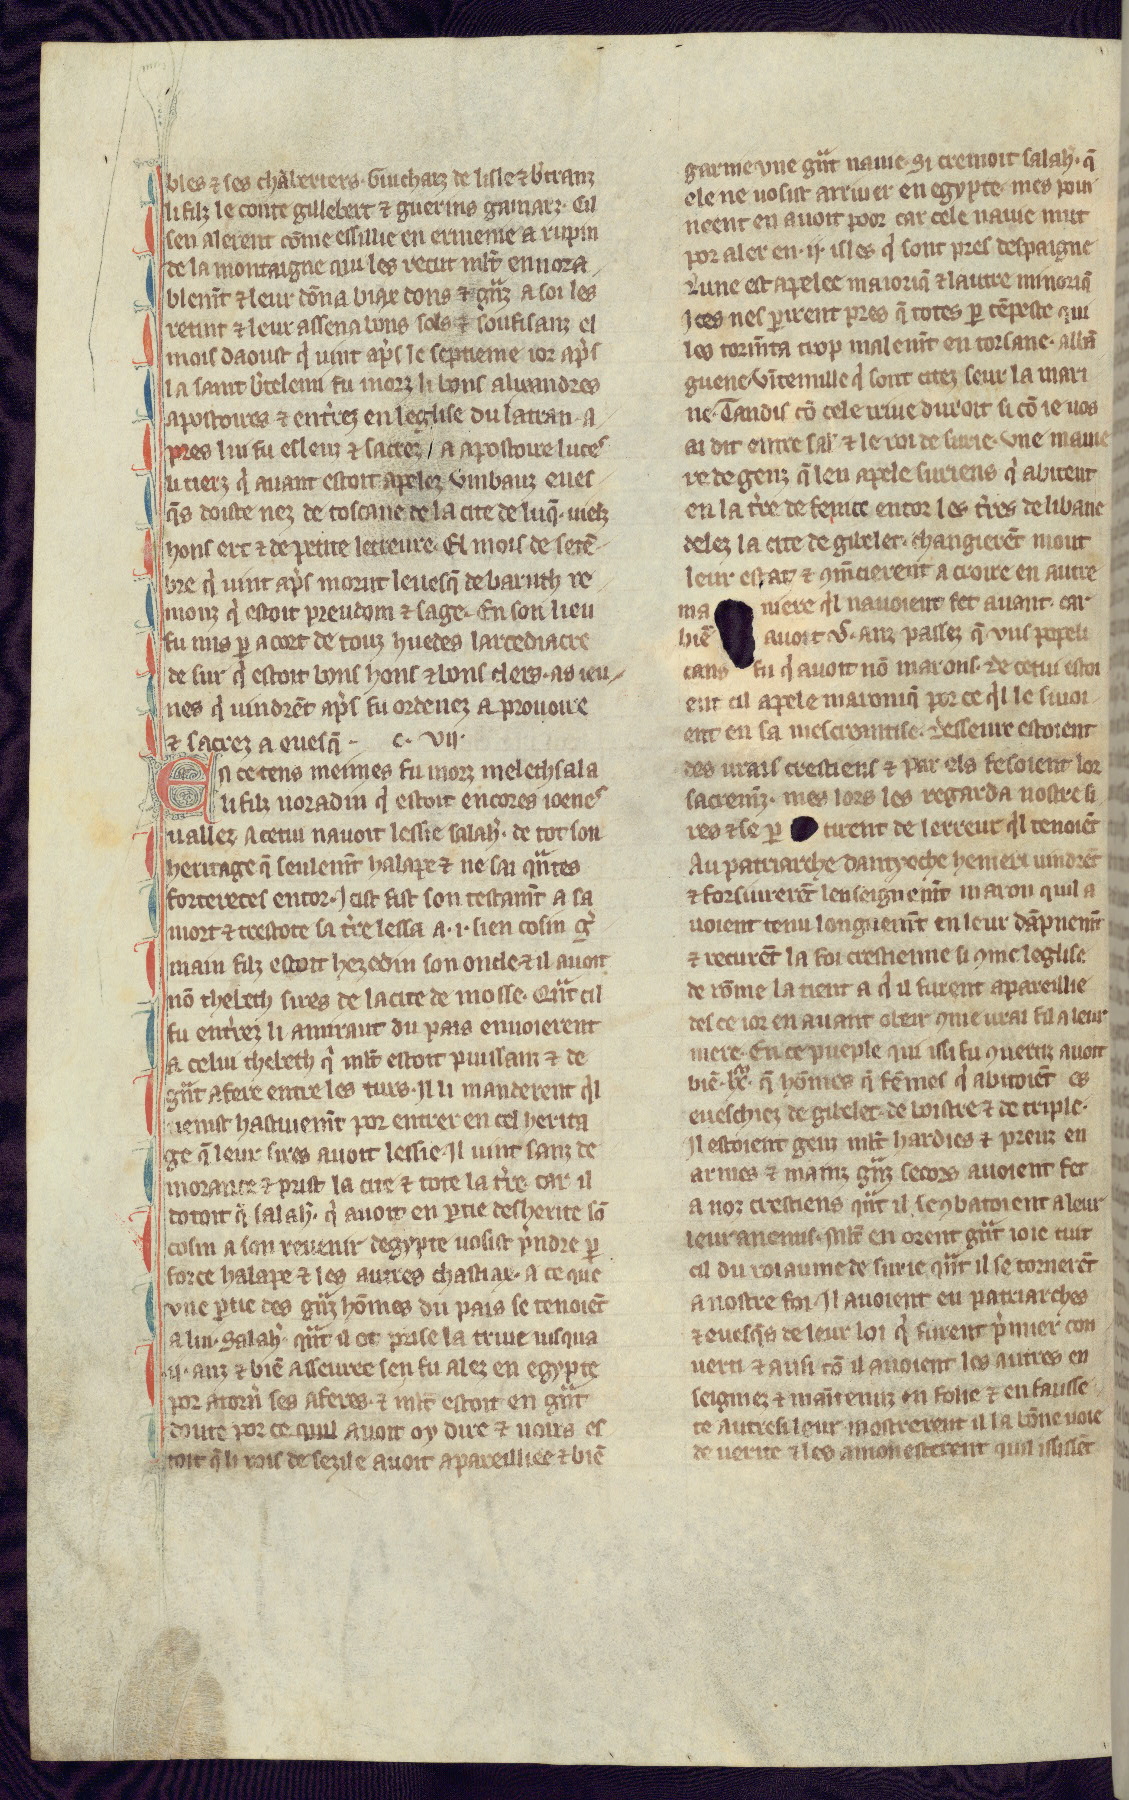 bles ⁊ ses chãberiers. Guicharz de lisle ⁊ bᵉtranz
li filz le conte gillebert ⁊ guerins gainarz. Cil
sen alerent cõme essillie en ermenie a rupin
de la montaigne qui les recut ml̃t ennora
blem̃t ⁊ leur dõna biax dons ⁊ gñz a soi les
retint ⁊ leur assena bons sols ⁊ soufisanz el
mois daoust q̾ uint ap̾s le septieme ior ap̾s
la saint b̾telemi fu morz li bons alixandres
apostoires ⁊ ent̾rez en leglise du latran. a
pres lui fu esleuz ⁊ sacrez / a apostoire luces
li tierz q̾ auant estoit apelez Vmbauz eues
q̃s doiste nez de toscane de la cite de luq̃. uielz
hons ert ⁊ de petite letreure. El mois de setẽ
bre q̾ uint ap̾s morut leuesq̃ de baruth re
monz q̾ estoit preudom ⁊ sage. En son lieu
fu mis ꝑ acort de touz huedes larcediacre
de sur q̾ estoit bons hons ⁊ bons clers. as ieu
nes q̾ uindrẽt ap̾s fu ordenez a prouoire
⁊ sacrez a euesq̃. c. vij.
En ce tens meimes fu morz melechsala
li filz noradin q̾ estoit encores ioenes
uallez A cetui nauoit lessie salaħ. de tot son
heritage q̃ seulem̃t halape ⁊ ne sai q̃ntes
forteretes entor. Icist fist son testam̃t a sa
mort ⁊ trestote sa t̾re lessa a .i. sien cosin g̾
main filz estoit hezedin son oncle ⁊ il auoit
nõ thebeth sires de la cite de mosse. Q̃nt cil
fu ent̾rez li amiraut du pais enuoierent
a celui thebeth q̾ ml̃t estoit puissanz ⁊ de
g̃nt afere entre les turs. Il li manderent q̾l
uenist hastiuem̃t por entrer en cel herita
ge q̃ leur sires auoit lessie. Il uint sanz de
morance ⁊ prist la cite ⁊ tote la t̾re. car il
dotoit q̃ salaħ. q̾ auoit en ꝑtie desherite sõ
cosin a son reuenir degypte uosist p̾ndre ꝑ
force halape ⁊ les autres chastiax. a ce que
vne ꝑtie des g̃nz hõmes du pais se tenoiẽt
a lui. Salaħ. q̃nt il ot prise la triue iusqua
.ij. anz ⁊ biẽ asseuree sen fu alez en egypte
por atorn̾ ses aferes. ⁊ ml̃t estoit en g̃nt
doute por ce quil auoit oy dire ⁊ uoirs es
toit q̃ li rois de sezile auoit apareilliee ⁊ biẽ
garnie vne g̃nt nauie. Si cremoit salaħ. q̃
ele ne uosist arriuer en egypte. mes poiu
neent en auoit poor car cele nauie mut
por aler en .ij. isles q̾ sont pres despaigne
lune est apelee maioriq̃ ⁊ lautre minoriq̃
Ices nes ꝑirent pres q̃ totes ꝑ tẽpeste qui
les torm̃ta trop malem̃t en torsane. albã
guene. Vĩtemille q̾ sont citez seur la mari
ne. Tandis cõ cele triue duroit si cõ ie uos
ai dit entre sal̾ ⁊ le roi de surie. vne manie
re de genz q̃ len apele suriens q̾ abitent
en la t̾re de fenice entor les t̾res de libane
delez la cite de gibelet. changierẽt mout
leur estat ⁊ ꝯm̃cierent a croire en autre
ma niere q̾l nauoient fet auant. car
biẽ auoit vͨ. anz passez q̃ vns popeli
cans fu q̾ auoit nõ marons. de cetui estoi
ent cil apele maroniq̃ por ce q̾l le siuoi
ent en sa mescreantise. Desseure estoient
des urais crestiens ⁊ par els fesoient lor
sacrem̃z. mes lors les regarda nostre si
res ⁊ se ꝑ tirent de lerreur q̾l tenoiẽt
Au patriarche dantyoche hemeri uindrẽt
⁊ forsiurerẽt lenseignem̃t maron quil a
uoient tenu longuem̃t en leur dãpnem̃t
⁊ recurẽt la foi crestienne si ꝯme leglise
de rõme la tient a q̾ il furent apareillie
des ce ior en auant obeir ꝯme urai fil a leur
mere. En ce pueple qui issi fu ꝯuertiz auoit
biẽ .lx. q̃ hõmes q̃ fẽmes q̾ abitoiẽt es
eueschiez de gibelet. de boistre ⁊ de triple.
Il estoient genz ml̃t hardies ⁊ preuz en
armes ⁊ mainz g̃nz secors auoient fet
a noz crestiens q̃nt il se ꝯbatoient a leur
leur anemis. Ml̃t en orent g̃nt ioie tuit
cil du roiaume de surie q̃nt il se tornerẽt
a nostre foi. Il auoient eu patriarches
⁊ euesq̃s de leur loi q̾ furent p̾mier con
uerti ⁊ ausi cõ il auoient les autres en
seignez ⁊ maĩtenuz en folie ⁊ en fausse
te autresi leur mostrerent il la bõne uoie
de uerite ⁊ les amonesterent quil isissẽt